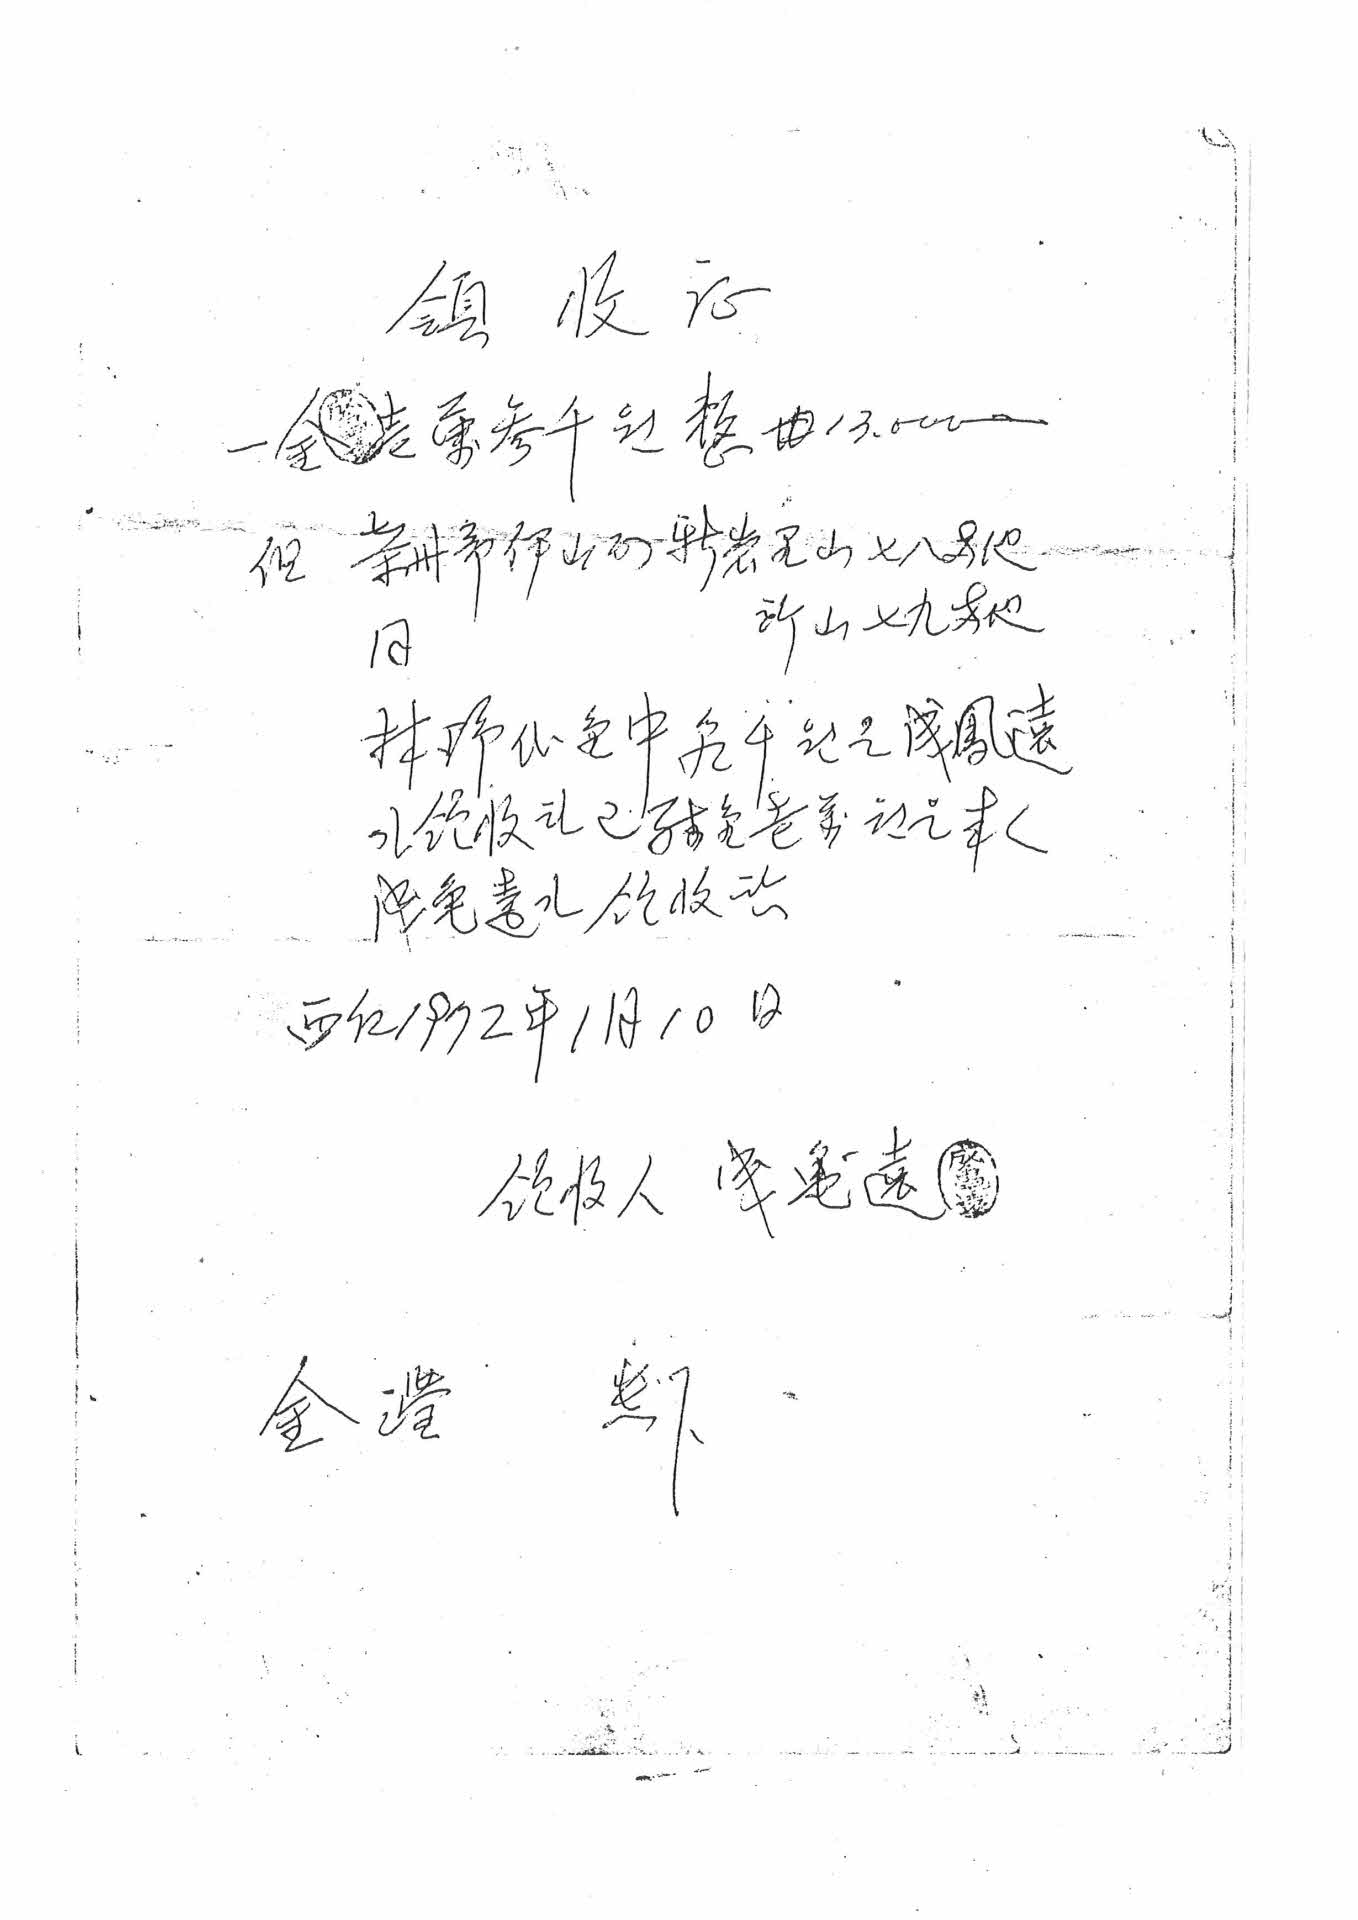 領收証
一金壹萬參千원整 13.000
但 榮州市伊山面 新岩里山七八番地
同 所山七九番地
林野代金中 參千원은 成鳳遠
가領收하고 殘金壹萬원은 本人
成龜遠가 領收함
西紀1972年1月10日
領收人 成龜遠
金瀅 貴下